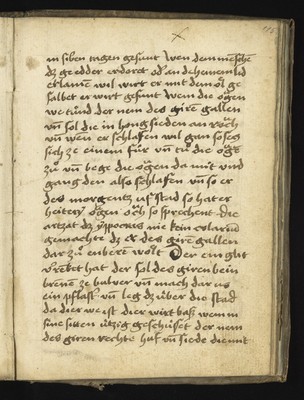 in siben tagen gesunt wen dem menschē
dz geeder erdoret od' an deheinem lid
erlamen wil wirt er mit dem öl ge
salbet er wirt gesunt Wem die ögen
we tůnd der nem des giren gallen
vn̄ sol die in hong sieden an röch
vn̄ wen er schlaffen wil gan so secz
sich ze einem für vn̄ tů die ögē
zů vn̄ bege die ögen da mit vnd
gang den also schlaffen vn̄ so er
des morgentz uf stad so hat er
heitery ögen öch so sprechent die
artzat dz ypocras nie kein
gemachte dz er des giren gallen
dar zů enbere wolt Der ein glit
v'renket hat der sol des giren bein
brene ze bulver vn̄ mach dar us
ein pflast' vn̄ leg dz über die stad
da dier we ist dier wirt bas wem in
sine sitten geschüsset der nem
des giren rechte vn̄ siede die mit